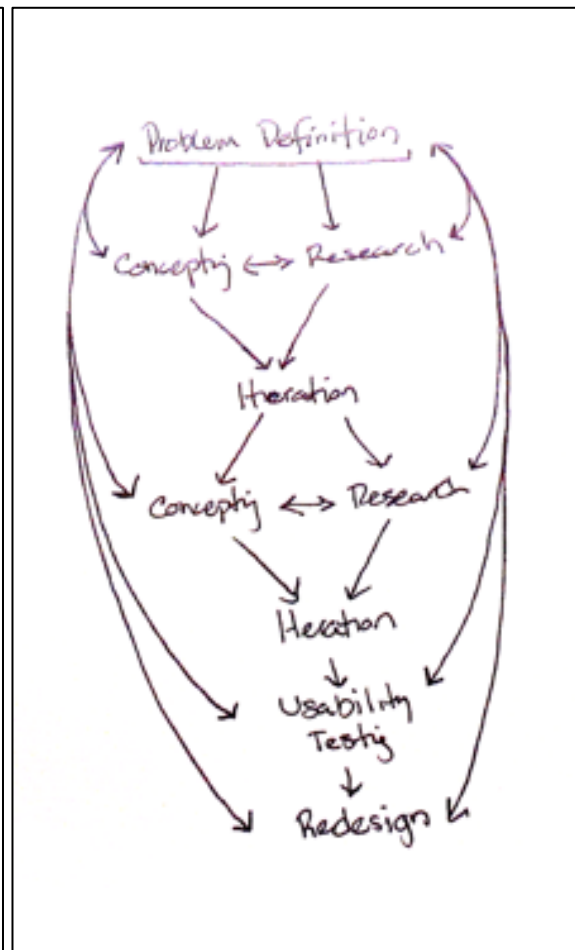 Problem Definition
Concepting ↔ Research
Iteration
Concepting ↔ Research
Iteration
Usability
Testing
Redesign